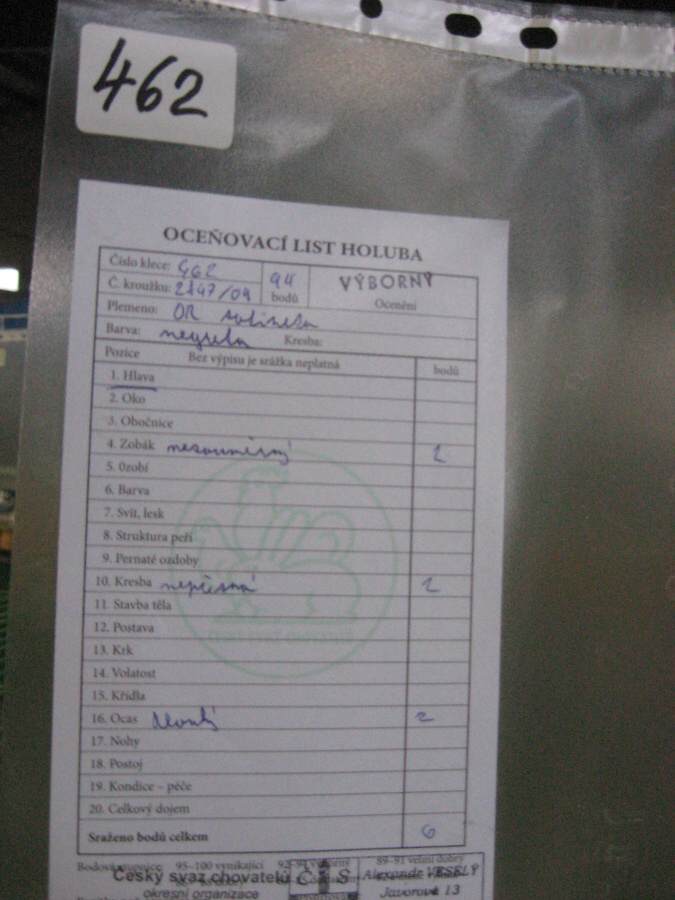 462
OCEŇOVACÍ LIST HOLUBA
Číslo klece: 462
94 bodů
VÝBORNÝ
Č. kroužku: 2147/09
Ocenění
Plemeno: OR
Barva: Kresba:
Pozice Bez výpisu je srážka neplatná bodů
1. Hlava
2. Oko
3. Obočnice
4. Zobák nesouměrný 2
5. Ozobí
6. Barva
7. Svit, lesk
8. Struktura peří
9. Pernaté ozdoby
10. Kresba nepřesná 2
11. Stavba těla
12. Postava
13. Krk
14. Volatost
15. Křídla
16. Ocas dlouhý 2
17. Nohy
18. Postoj
19. Kondice – péče
20. Celkový dojem
Sraženo bodů celkem 6
Bodová stupnice 95–100 vynikající 92–94 výborný 89–91 velmi dobrý
Český svaz chovatelů ČIS Alexandr VESELÝ
okresní organizace Javorová 13